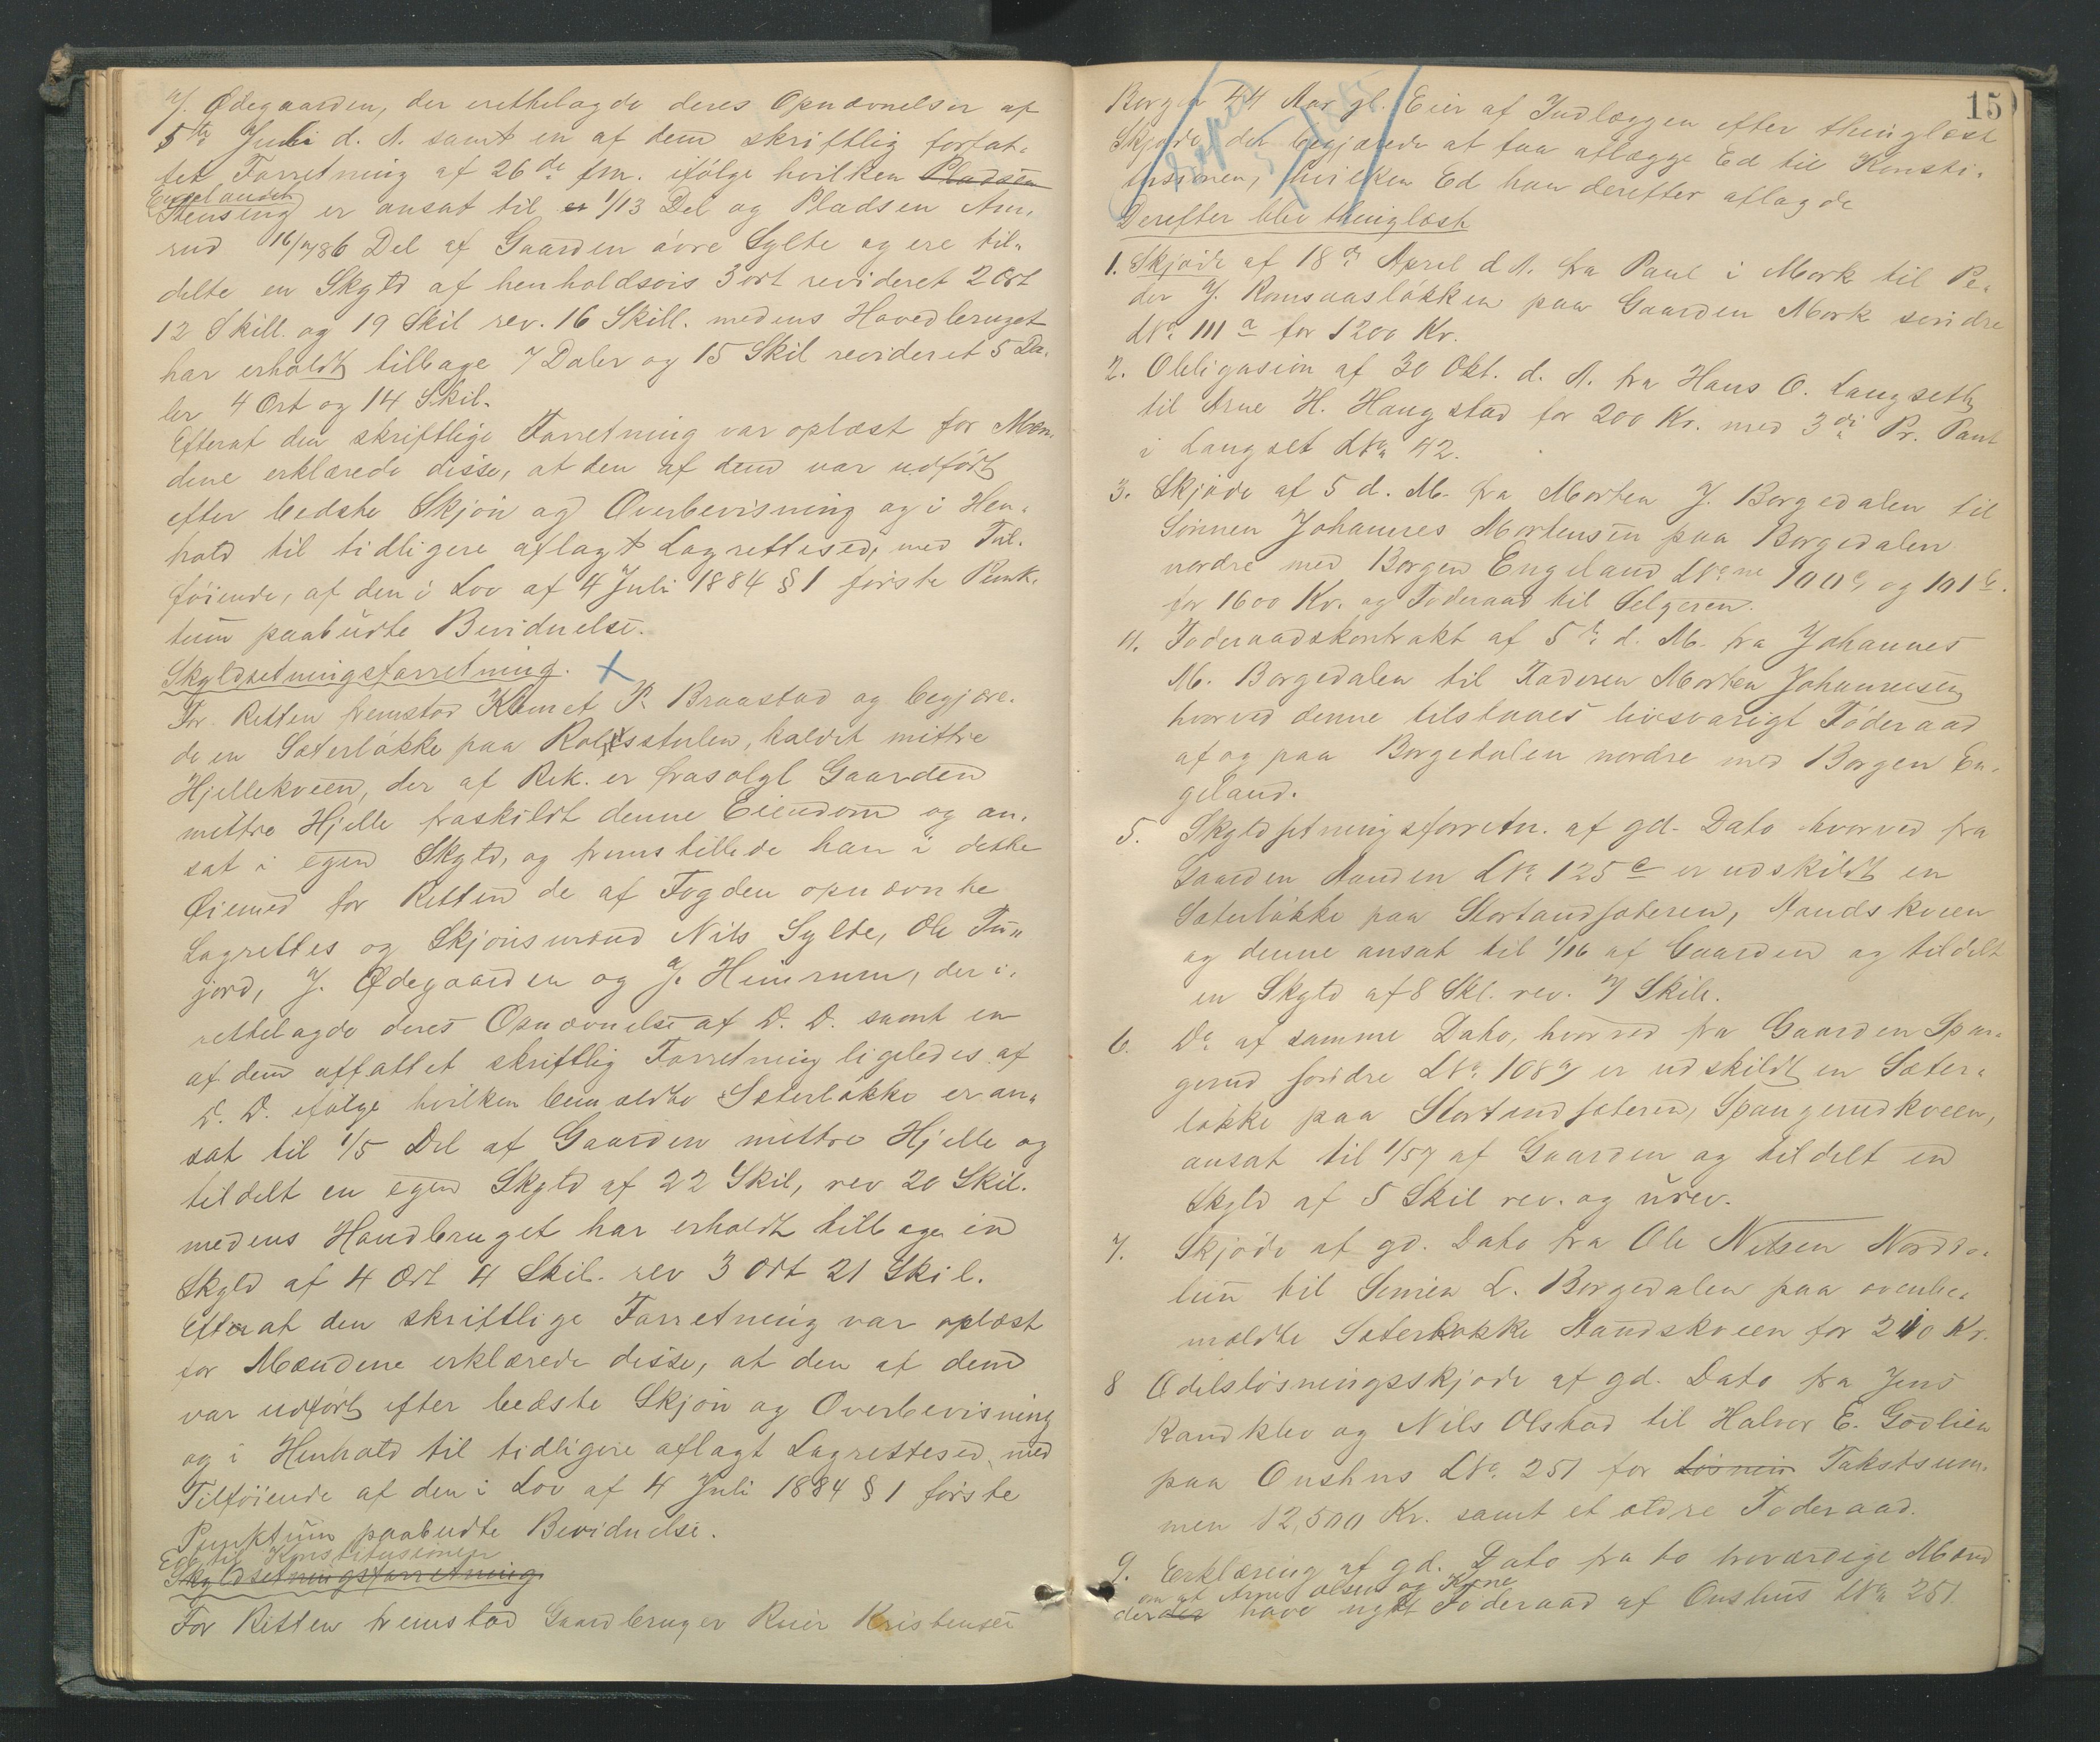 J. Ødegaarden, der erethelagde deres Opnævnelser af
5te Juli d. A. samt en af dem skriftlig forfat-
tet Forretning af 26de f.m. ifølge hvilken Pladsen
Engelandet
Stensing er ansat til 1/13 Del og Pladsen Am-
rud 16/786 Del af Gaarden øvre Sylte og ere til-
delte en Skyld af henholdsvis 3 ort revideret 2 Ort
12 Skill. og 19 Skil rev. 16 Skill. medens Hovedbruget
har erholdt tilbage 7 Daler og 15 Skil revideret 5 Da-
ler 4 Ort og 14 Skil.
Efterat den skriftlige Forretning var oplæst for Mæn-
dene erklærede disse, at den af dem var udført
efter bedste Skjøn og Overbevisning og i Hen-
hold til tidligere aflagt Lagrettesed, med Til-
føiende, af den i Lov af 4 Juli 1884 § 1 første Punk-
tum paabudte Bevidnelse.
Skyldsetningsforretning.
For Retten fremstod Knut P. Braastad og begjære-
de en Sæterløkke paa Rolsstulen, kaldet mittre
Hjellekveen, der af Rek. er frasolgt Gaarden
mittre Hjelle fraskildt denne Eiendom og an-
sat i egen Skyld, og fremstillede han i dette
Øiemed for Retten de af Fogden opnævnte
Lagrettes og Skjønsmænd Nils Sylte, Ole Tu-
jord, J. Ødegaarden og J. Heimrum, der i-
rettelagde deres Opnævnelse af D. D. samt en
af dem affattet skriftlig Forretning ligeledes af
D. D. ifølge hvilken bemældte Sæterløkke er an-
sat til 1/5 Del af Gaarden mittre Hjelle og
tildelt en egen Skyld af 22 Skil, rev 20 Skil.
medens Hovedbruget har erholdt tilbage en
Skyld af 4 Ort 4 Skil. rev 3 Ort 21 Skil.
Efterat den skriftlige Forretning var oplæst
for Mændene erklærede disse, at den af dem
var udført efter bedste Skjøn og Overbevisning
og i Henhold til tidligere aflagt Lagrettesed, med
Tilføiende af den i Lov af 4 Juli 1884 § 1 første
Punktum paabudte Bevidnelse.
Ed til Konstitusionen
Skyldsetningsforretning
For Retten fremstod Gaardbruger Reier Kristensen
15
Borgen 44 Aar gl. Eier af Indlæggen efter thinglæst
Skjøde, der begjærede at faa aflægge Ed til Konsti-
tusionen, hvilken Ed han derefter aflagde
Derefter blev thinglæst
1. Skjøde af 18de April d. A. fra Paul i Mork til Pe-
der J. Romsaasløkken paa Gaarden Mork søndre
LNo 111 a for 1200 Kr.
2. Obligasion af 30 Okt. d. A. fra Hans O. Langseth
til Arne H. Haugstad for 200 Kr. med 3die Pr. Pant
i Langset LNo 42.
3. Skjøde af 5 d. M. fra Morten J. Borgedalen til
Sønnen Johannes Mortensen paa Borgedalen
nordre med Borgen Engeland LNo ne 100 c, og 101 b.
for 1600 Kr. og Føderaad til Selgeren.
4. Føderaadskontrakt af 5te d. M. fra Johannes
M. Borgedalen til Faderen Morten Johannesen
hvorved denne tilstaaes livsvarigt Føderaad
af og paa Borgedalen nordre med Borgen En-
geland.
5. Skyldsetningsforretn. af gd. Dato hvorved fra
Gaarden Aanden LNo 125 c er udskildt en
Sæterløkke paa Stortandsæteren, Aandskveen
og denne ansat til 1/16 af Gaarden og tildelt
en Skyld af 8 Skl. rev. 7 Skill.
6. Do af samme Dato, hvorved fra Gaarden Span-
gerud søndre LNo 108 a er udskildt en Sæter-
løkke paa Stortandsæteren, Spangerudkveen,
ansat til 1/57 af Gaarden og tildelt en
Skyld af 5 Skil rev. og urev.
7. Skjøde af gd. Dato fra Ole Nilsen Nordre-
lien til Simen L. Borgedalen paa ovenbe-
mældte Sæterløkke Aandskveen for 210 Kr.
8 Odelsløsningsskjøde af gd. Dato fra Jens
Randklev og Nils Olstad til Halvor E. Godlien
paa Onshus LNo. 251 for Løsnin Takstsum-
men 12,500 Kr. samt et ældre Føderaad.
9. Erklæring af gd. Dato fra to troværdige Mænd
om at Arne Olsen og Kone
der have nydt Føderaad af Onshus LNo 251